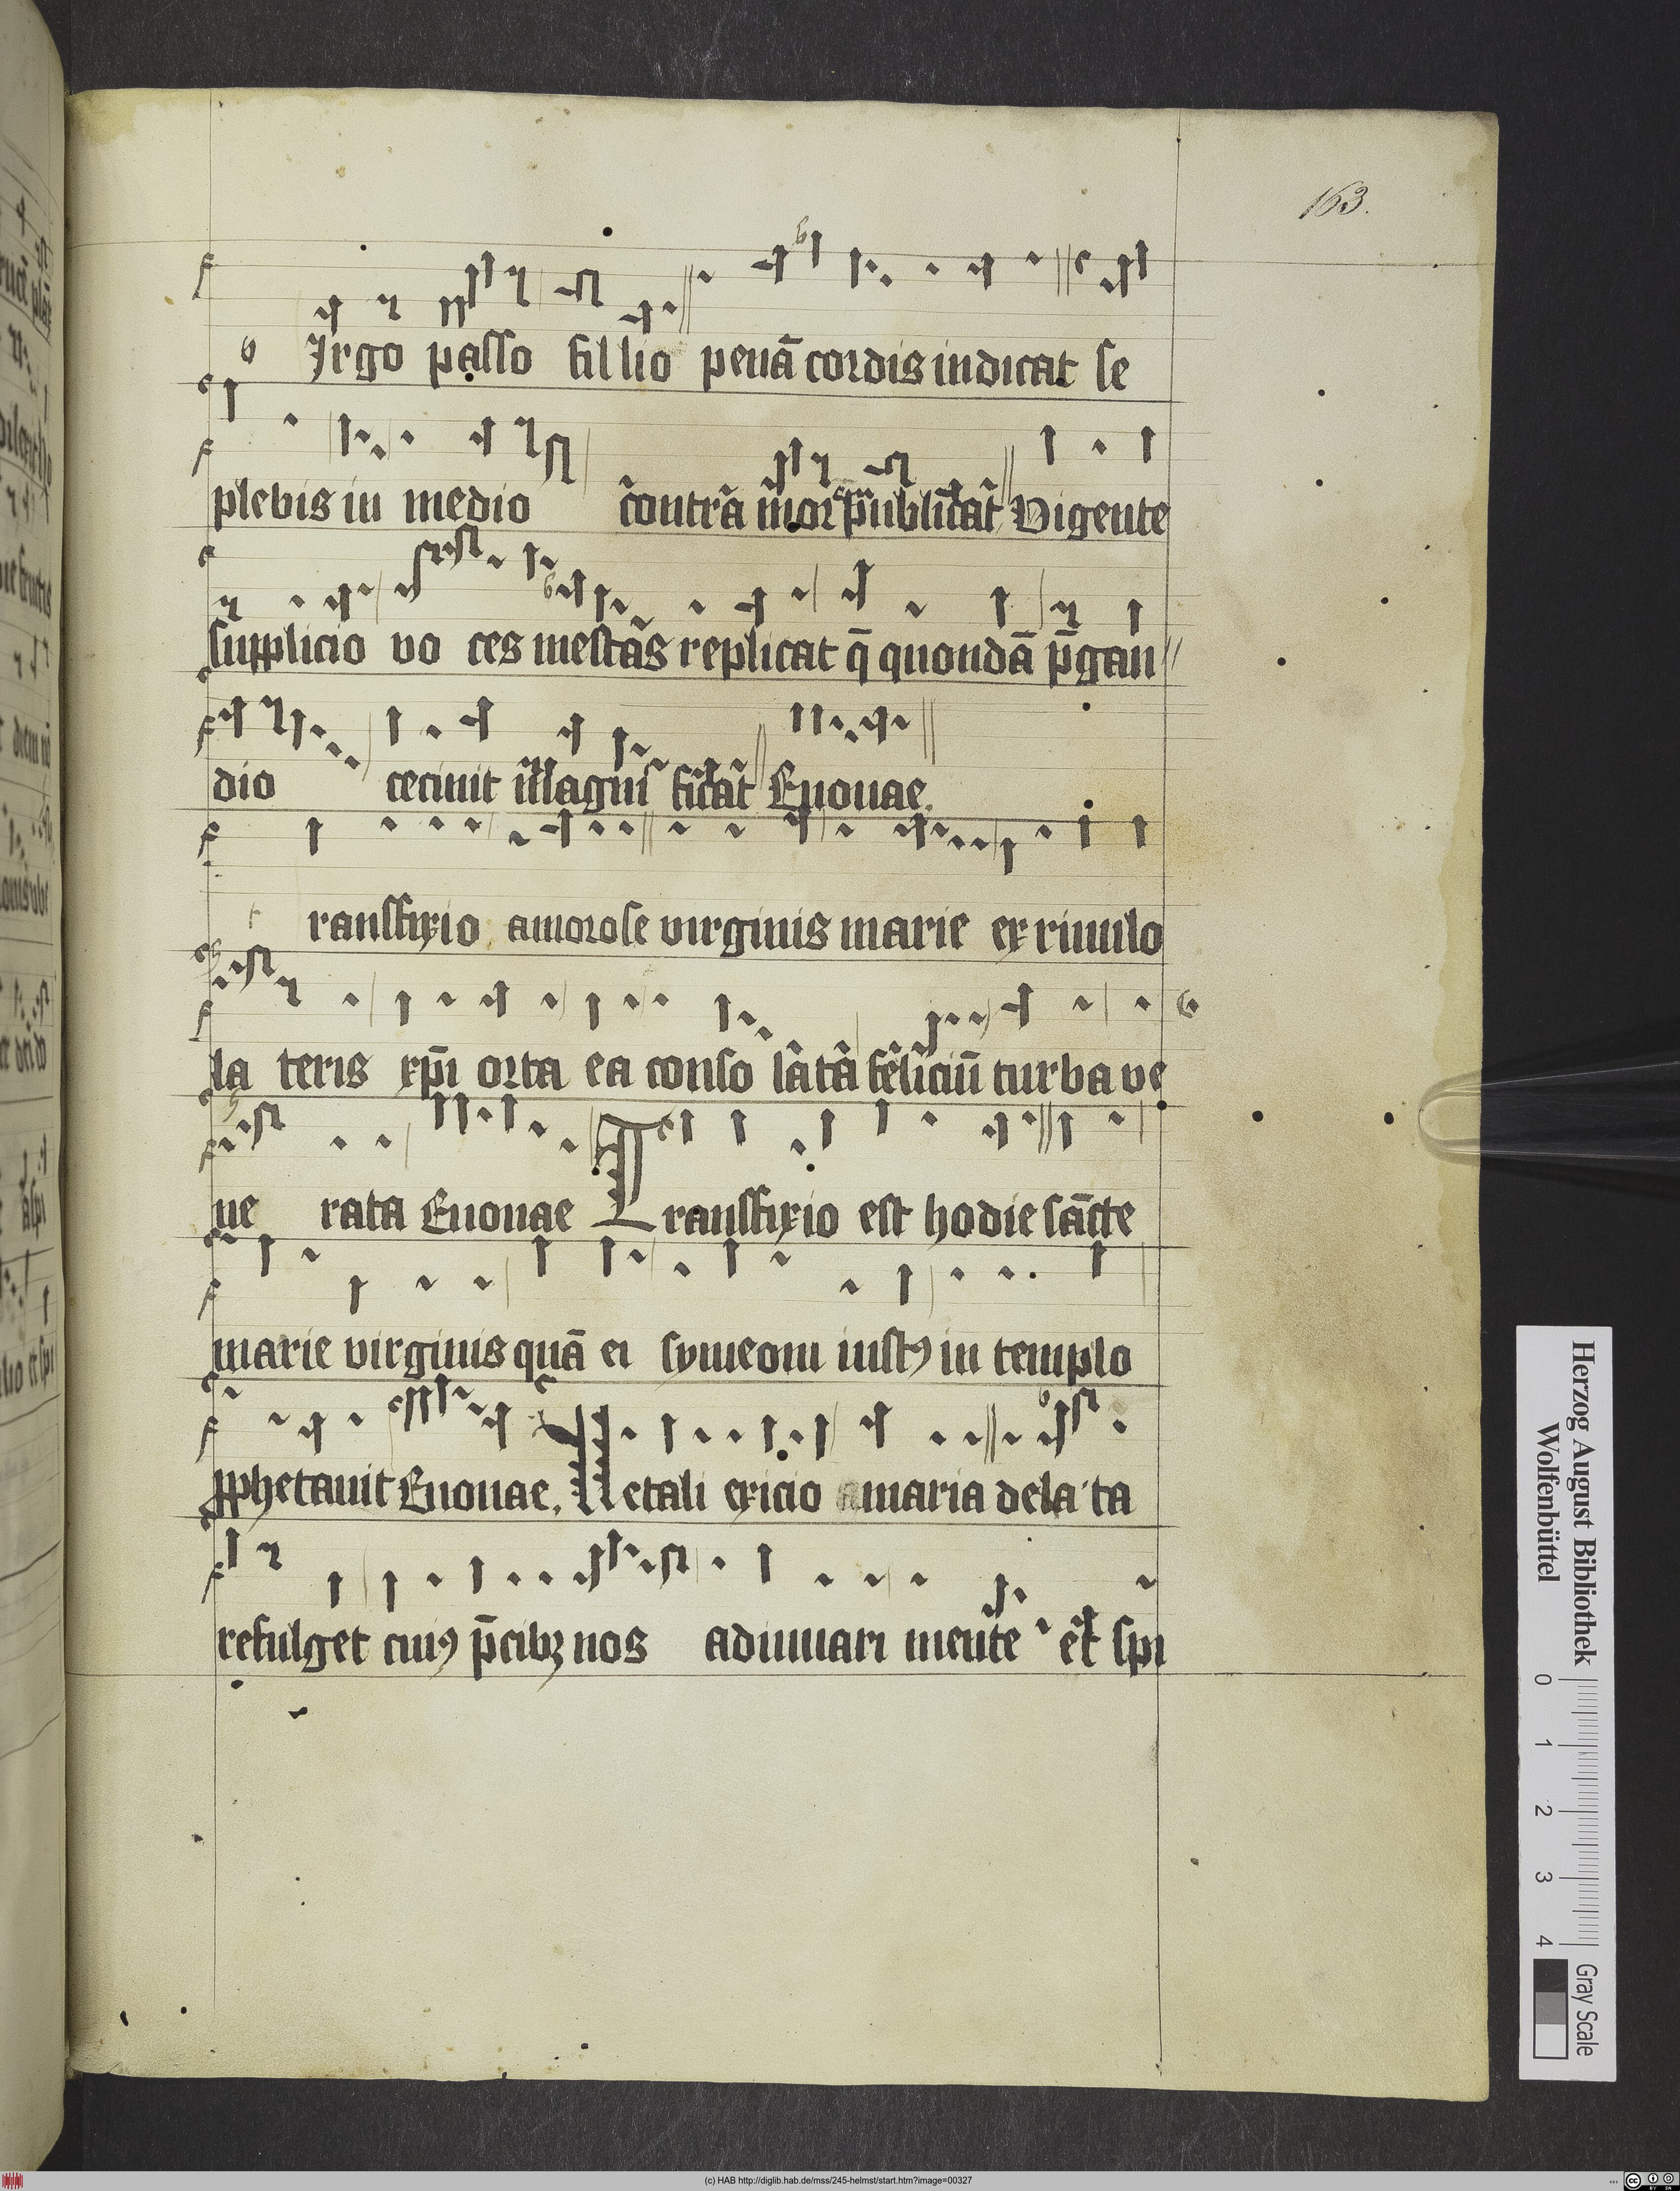 163.
v Irgo passo fillio penā cordis indicat se
plebis in medio contra publicat Vigente
supplicio vo ces mestas replicat q̄ quondā p̄gau
dio cecinit Magni ficat Euouae.
t ransfixio amorose virginis marie ex riuulo
la teris xp̄i orta ea conso lata feliciū turba ve
ne rata Euouae Transfixio est hodie sācte
marie virginis quā ei symeoni iustꝯ in templo
ꝓphetauit Euouae. Letali exicio maria dela ta
refulget cuiꝯ p̄cibꝫ nos adiuuari mente et spi
Herzog August Bibliothek
Wolfenbüttel
0 1 2 3 4
Gray Scale
(c) HAB http://diglib.hab.de/mss/245-helmst/start.htm?image=00327